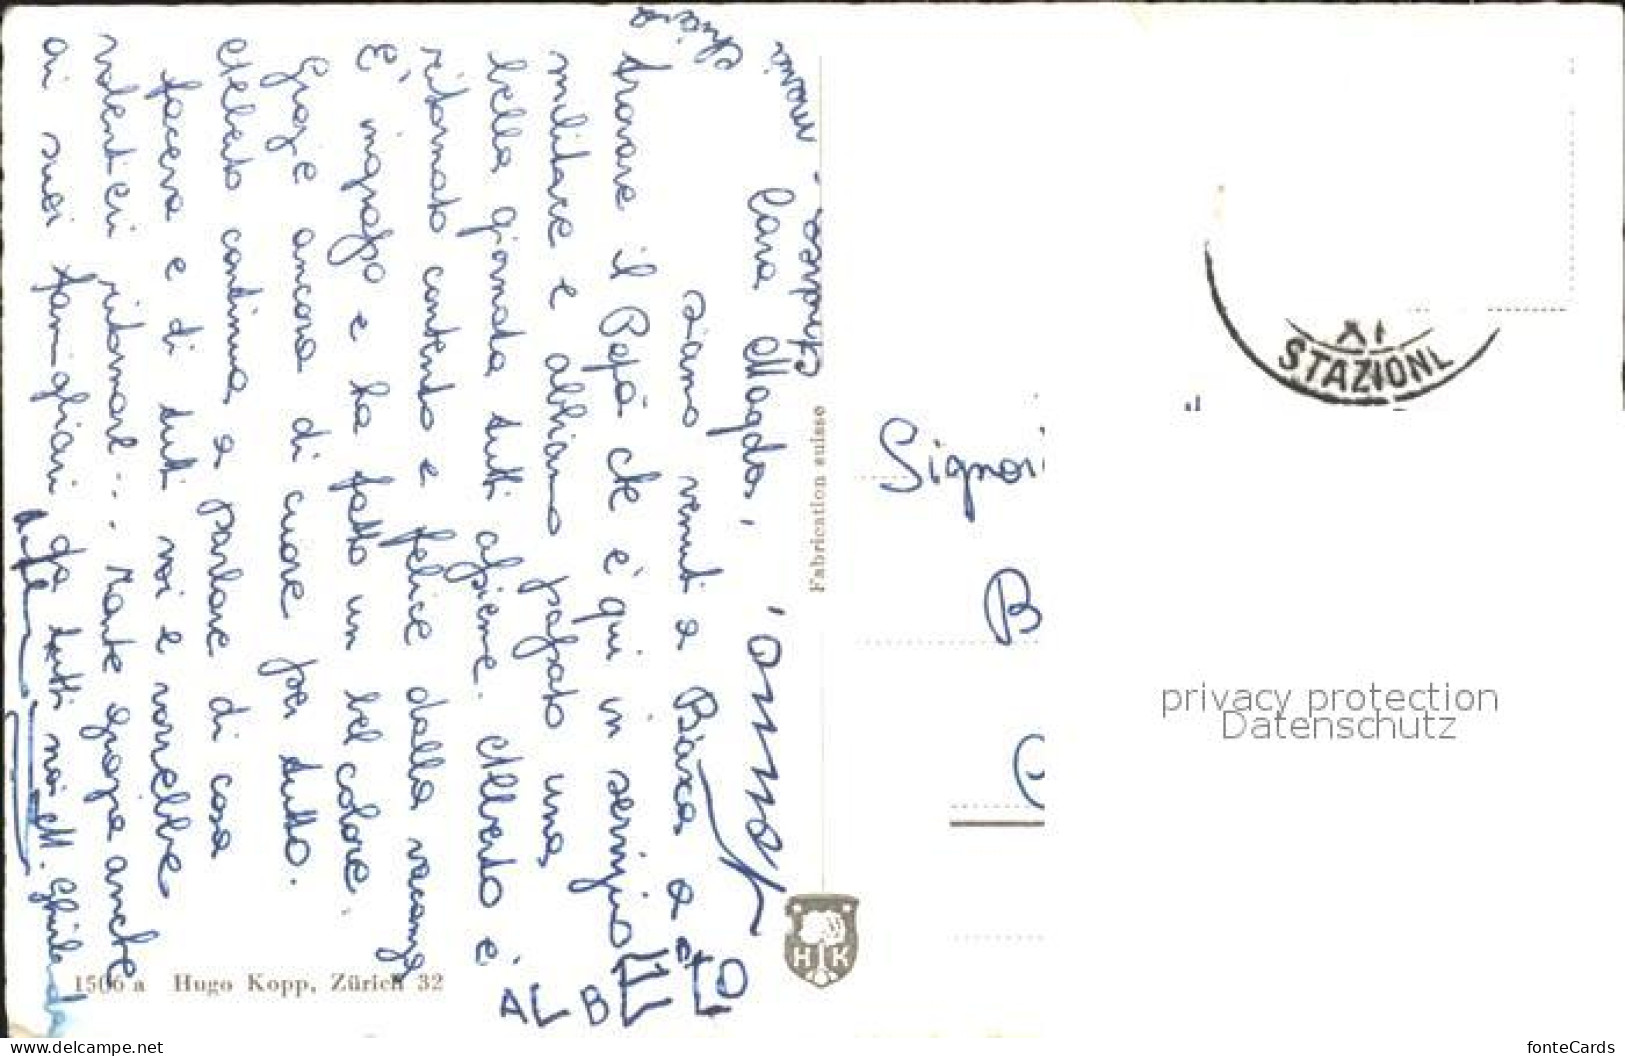 Cara Magda,
siamo venuti a Biasca a
trovare il Papà che è qui in servizio
militare e abbiamo passato una
bella giornata tutti assieme. Alberto è
ritornato contento e felice dalla vacanza
E' ingrasso e ha fatto un bel colore.
Grazie ancora di cuore per tutto.
Alberto continua a parlare di cosa
faceva e di tutti voi e vorrebbe
volentieri ritornare... Tante grazie anche
ai suoi famigliari da tutti noi M. Ghirlanda
ALBERTO
Andrea
Chiara
Fabrication suisse
HK
1506 a Hugo Kopp, Zürich 32
XI
STAZIONI
Signori
B
privacy protection
Datenschutz
www.delcampe.net
fonteCards